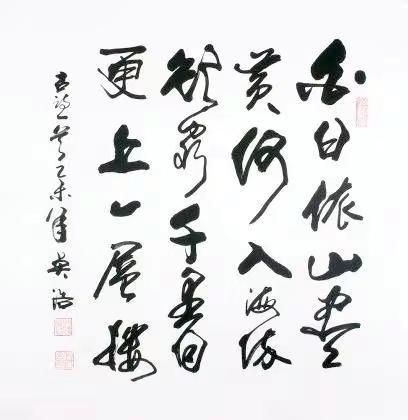 白日依山尽
黄河入海流
欲穷千里目
更上一层楼
古诗一首乙未年 浩